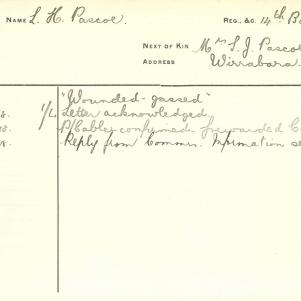 NAME L. H. Pascoe. REG., &C. 14th B
NEXT OF KIN Mrs S. J. Pasco
ADDRESS Wirrabara.
"Wounded - gassed"
8. 1/L Letter acknowledged.
P/Cable, confirmed - forwarded C
Reply from Commr. Information se